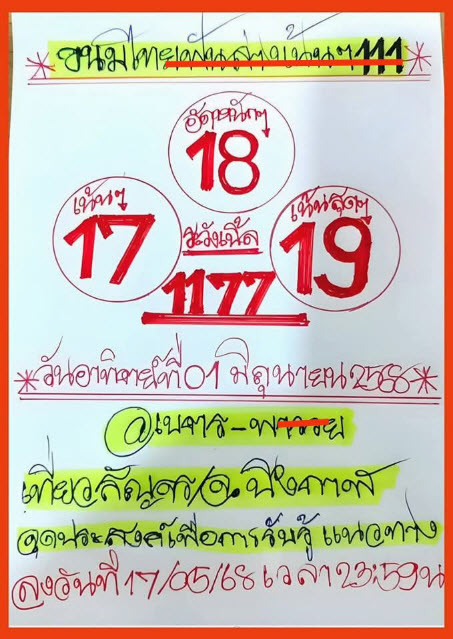 ขนมไทยพันล่างเน้นๆ 111
อัดหนักๆ
18
เน้นๆ
17
ระวังเบิ้ล
1177
เน้นสุดๆ
19
*วันอาทิตย์ที่ 01 มิถุนายน 2568*
@เนทร-พารวย
เที่ยวสัญจร/อ.บึงกาฬ
จุดประสงค์เพื่อการรับรู้ แนวทาง
ลงวันที่ 17/05/68 เวลา 23:59 น